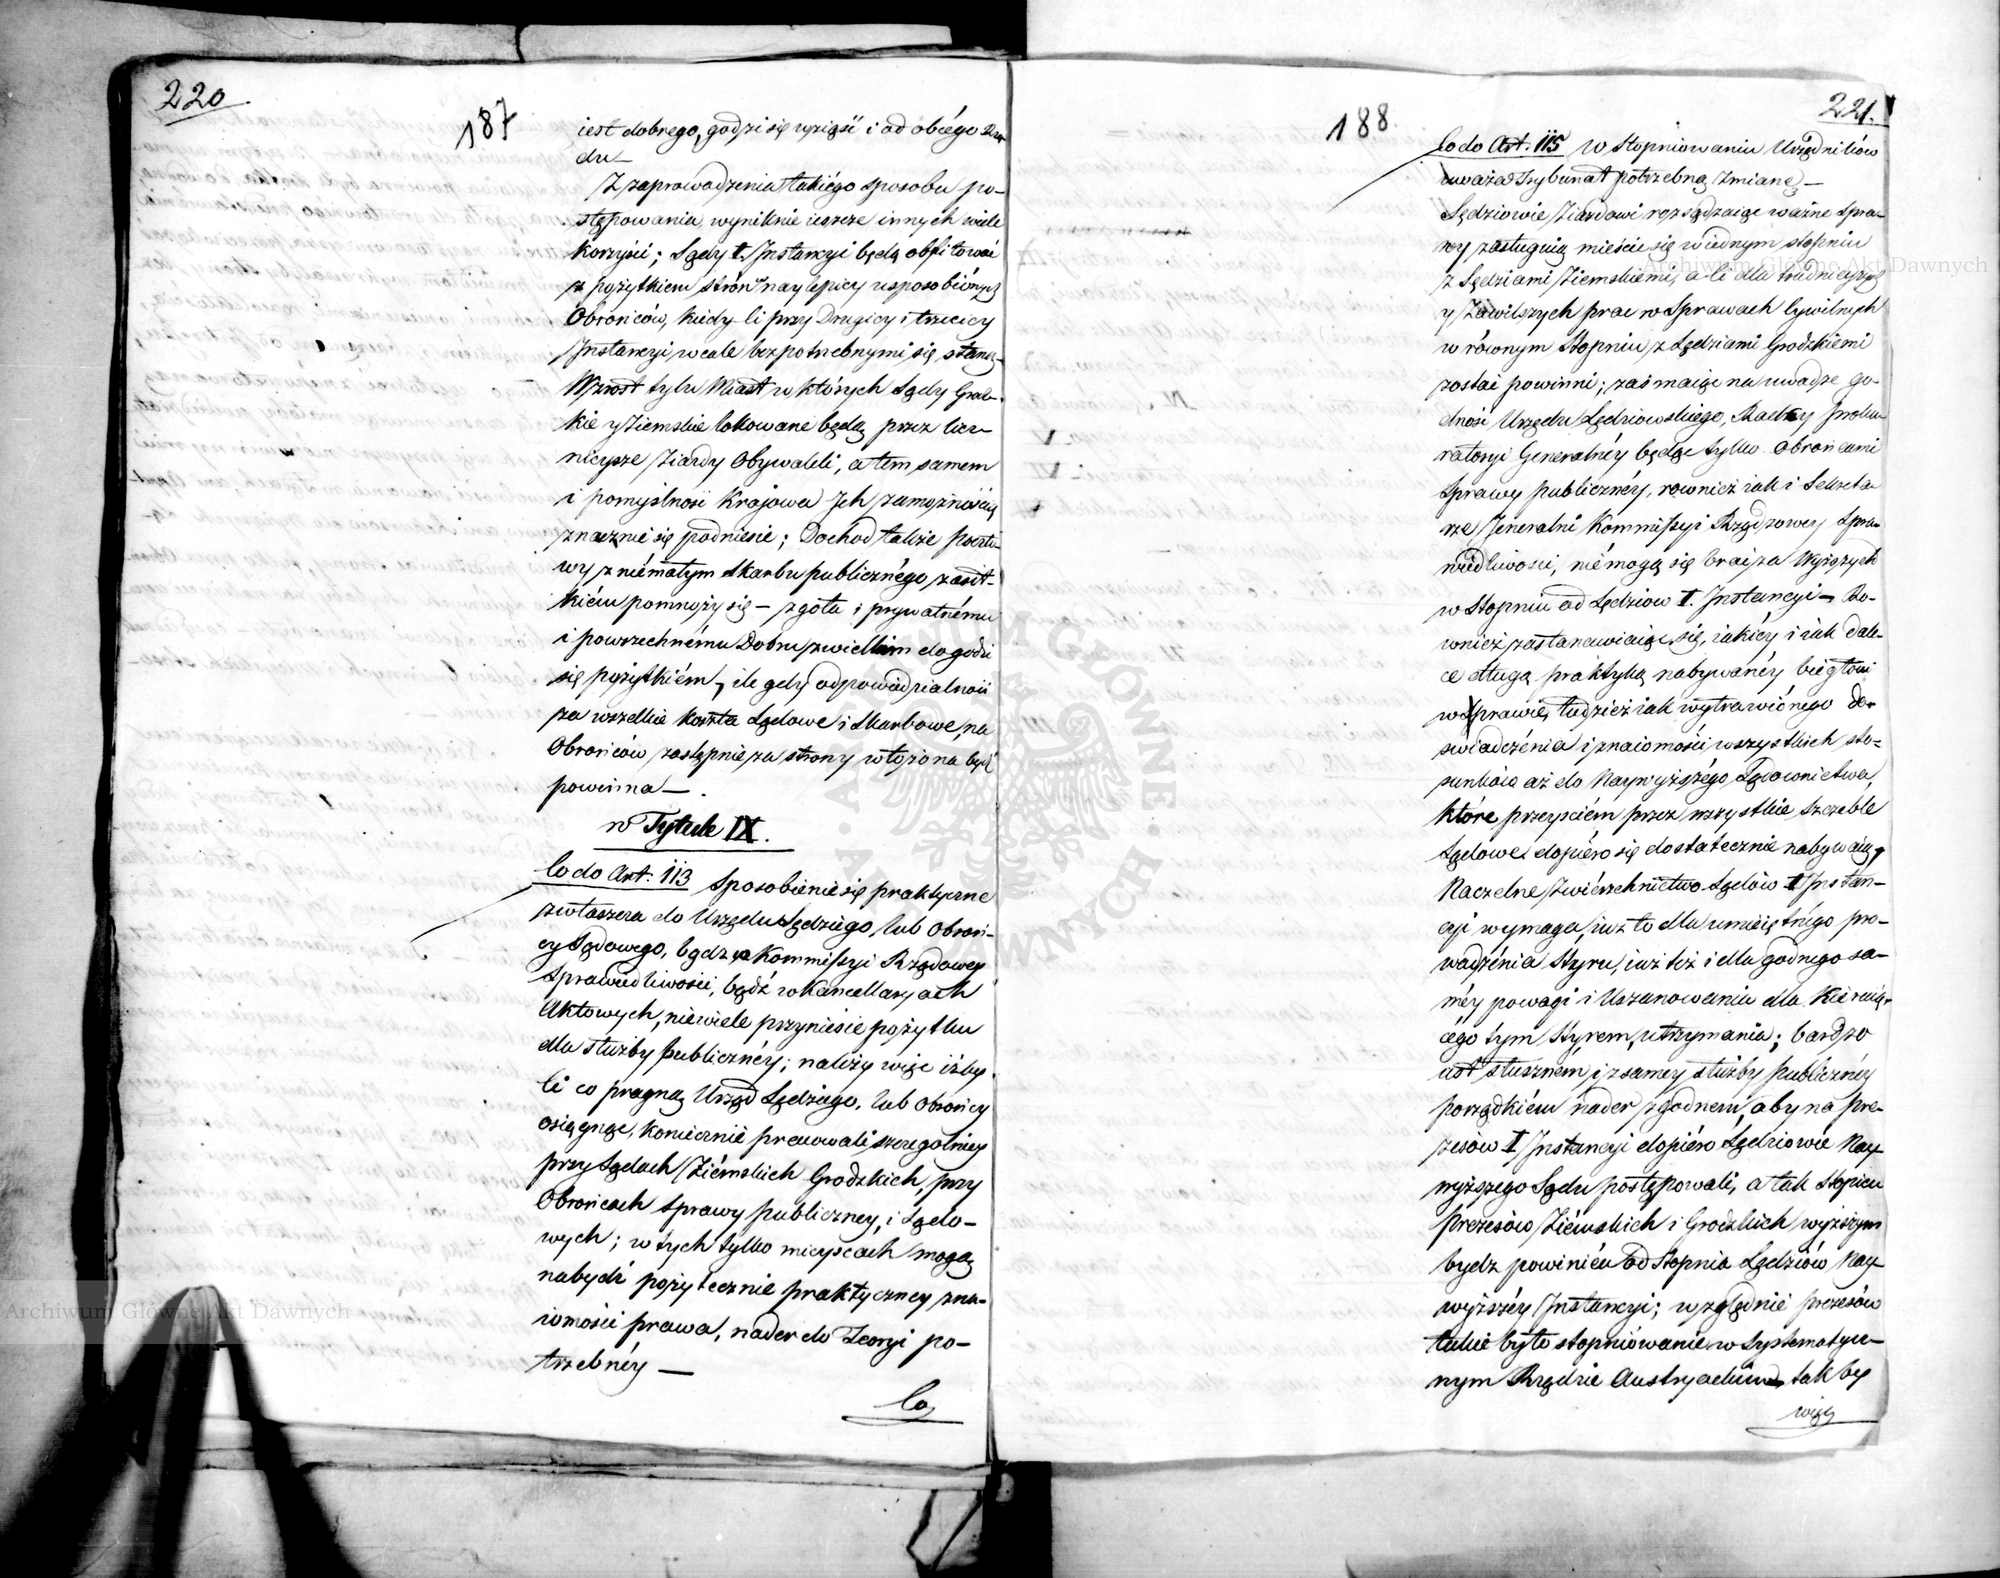 220
187
iest dobrego, godzi się wziąść i od obcego Rzą-
du —
Z zaprowadzenia takiego sposobu po-
stępowania wyniknie ieszcze innych wiele
korzyści; Sądy I. Instancyi będą obfitować
z pożytkiem strón naylepiey usposobiónych
Obrońców, kiedy li przy Drugiey i trzeciey
Instancyi wcale bezpotrzebnymi się staną —
Wzrost tylu Miast w których Sądy Grodz-
kie y Ziemskie lokowane będą przez licz-
nieysze Ziazdy Obywateli, a tem samem
i pomyślność Kraiowa Ich zamożnością
znacznie się podniesie; Dochod także poczto-
wy z niémałym skarbu publicznégo zasił-
kiém pomnoży się — zgoła i prywatnému
i powszechnému Dobru z wielkim dogodzi
się pożytkiém, ile gdy odpowiedzialność
za wszelkie koszta Sądowe i Skarbowe, na
Obrońców zastępnie za strony włożona być
powinna —.
w Tytule IX.
Co do Art. 113 Sposobienie się praktyczne
zwłaszcza do Urzędu Sędziego, lub Obroń-
cy Sądowego, bądź w Kommissyi Rządowey
Sprawiedliwości, bądź w Kancellaryach
Aktowych, niewiele przyniesie pożytku
dla służby publicznéy; należy więc iżby
ci co pragną Urząd Sędziego, lub Obrońcy
osiągnąć, koniecznie pracowali szczególniey
przy Sądach Ziémskich Grodzkich, przy
Obrońcach sprawy publiczney, i Sądo-
wych; w tych tylko mieyscach mogą
nabydź pożytecznie praktyczney zna-
iomości prawa, nader do Teoryi po-
trzebnéy —
Co
221.
188
Co do Art. 115 w Stopniowaniu Urzędników
uważa Trybunał potrzebną Zmianę —
Sędziowie Ziazdowi rozsądzaiąc ważne spra-
wy zasługuią mieścić się w iednym stopniu
z Sędziami Ziemskiemi, a li dla trudnieyszych
y Zawilszych prac w Sprawach Cywilnych
w równym Stopniu z Sędziami Grodzkiemi
zostać powinni; zaś maiąc na uwadze go-
dność Urzędu Sędziowskiego, Radcy Proku-
ratoryi Generalnéy będąc tylko Obrońcami
Sprawy publicznéy, rownież iak i Sekreta-
rze Jeneralni Kommissyi Rządzowey Spra-
wiedliwości, niémogą się brać za Wyższych
w Stopniu od Sędziow I. Instancyi — Ró-
wnież zastanawiaiąc się, iakiéy i iak dale-
ce długą praktyką nabywanéy biegłości
w sprawie, tudzież iak wytrawiónego do-
swiadczénia i znaiomości wszystkich sto-
sunków aż do Naywyższégo Sądownictwa,
które przeyściém przez wszystkie szczeble
Sądowe dopiéro się dostatecznie nabywaią,
Naczelne Zwiérzchnictwo Sądów I Instan-
cyi wymaga, iuż to dla umieiętnégo pro-
wadzénia Styru, iuż też i dla godnego sa-
méy powagi i Uszanowania dla kieruią-
cégo tym Styrem, utrzymania; bardzo
iest słuszném i z samey służby publicznéy
porządkiém nader zgodnem, aby na Pre-
zesów I Instancyi dopiéro Sędziowie Nay-
wyższego Sądu postępowali, a tak Stopień
Prezesów Ziémskich i Grodzkich wyższym
bydz powinién od Stopnia Sędziów Nay-
wyższéy Instancyi; względnie Prezesów
takie było stopniówanie w Systematycz-
nym Rządzie Austryackim, tak by
więc
Archiwum Główne Akt Dawnych
Archiwum Główne Akt Dawnych